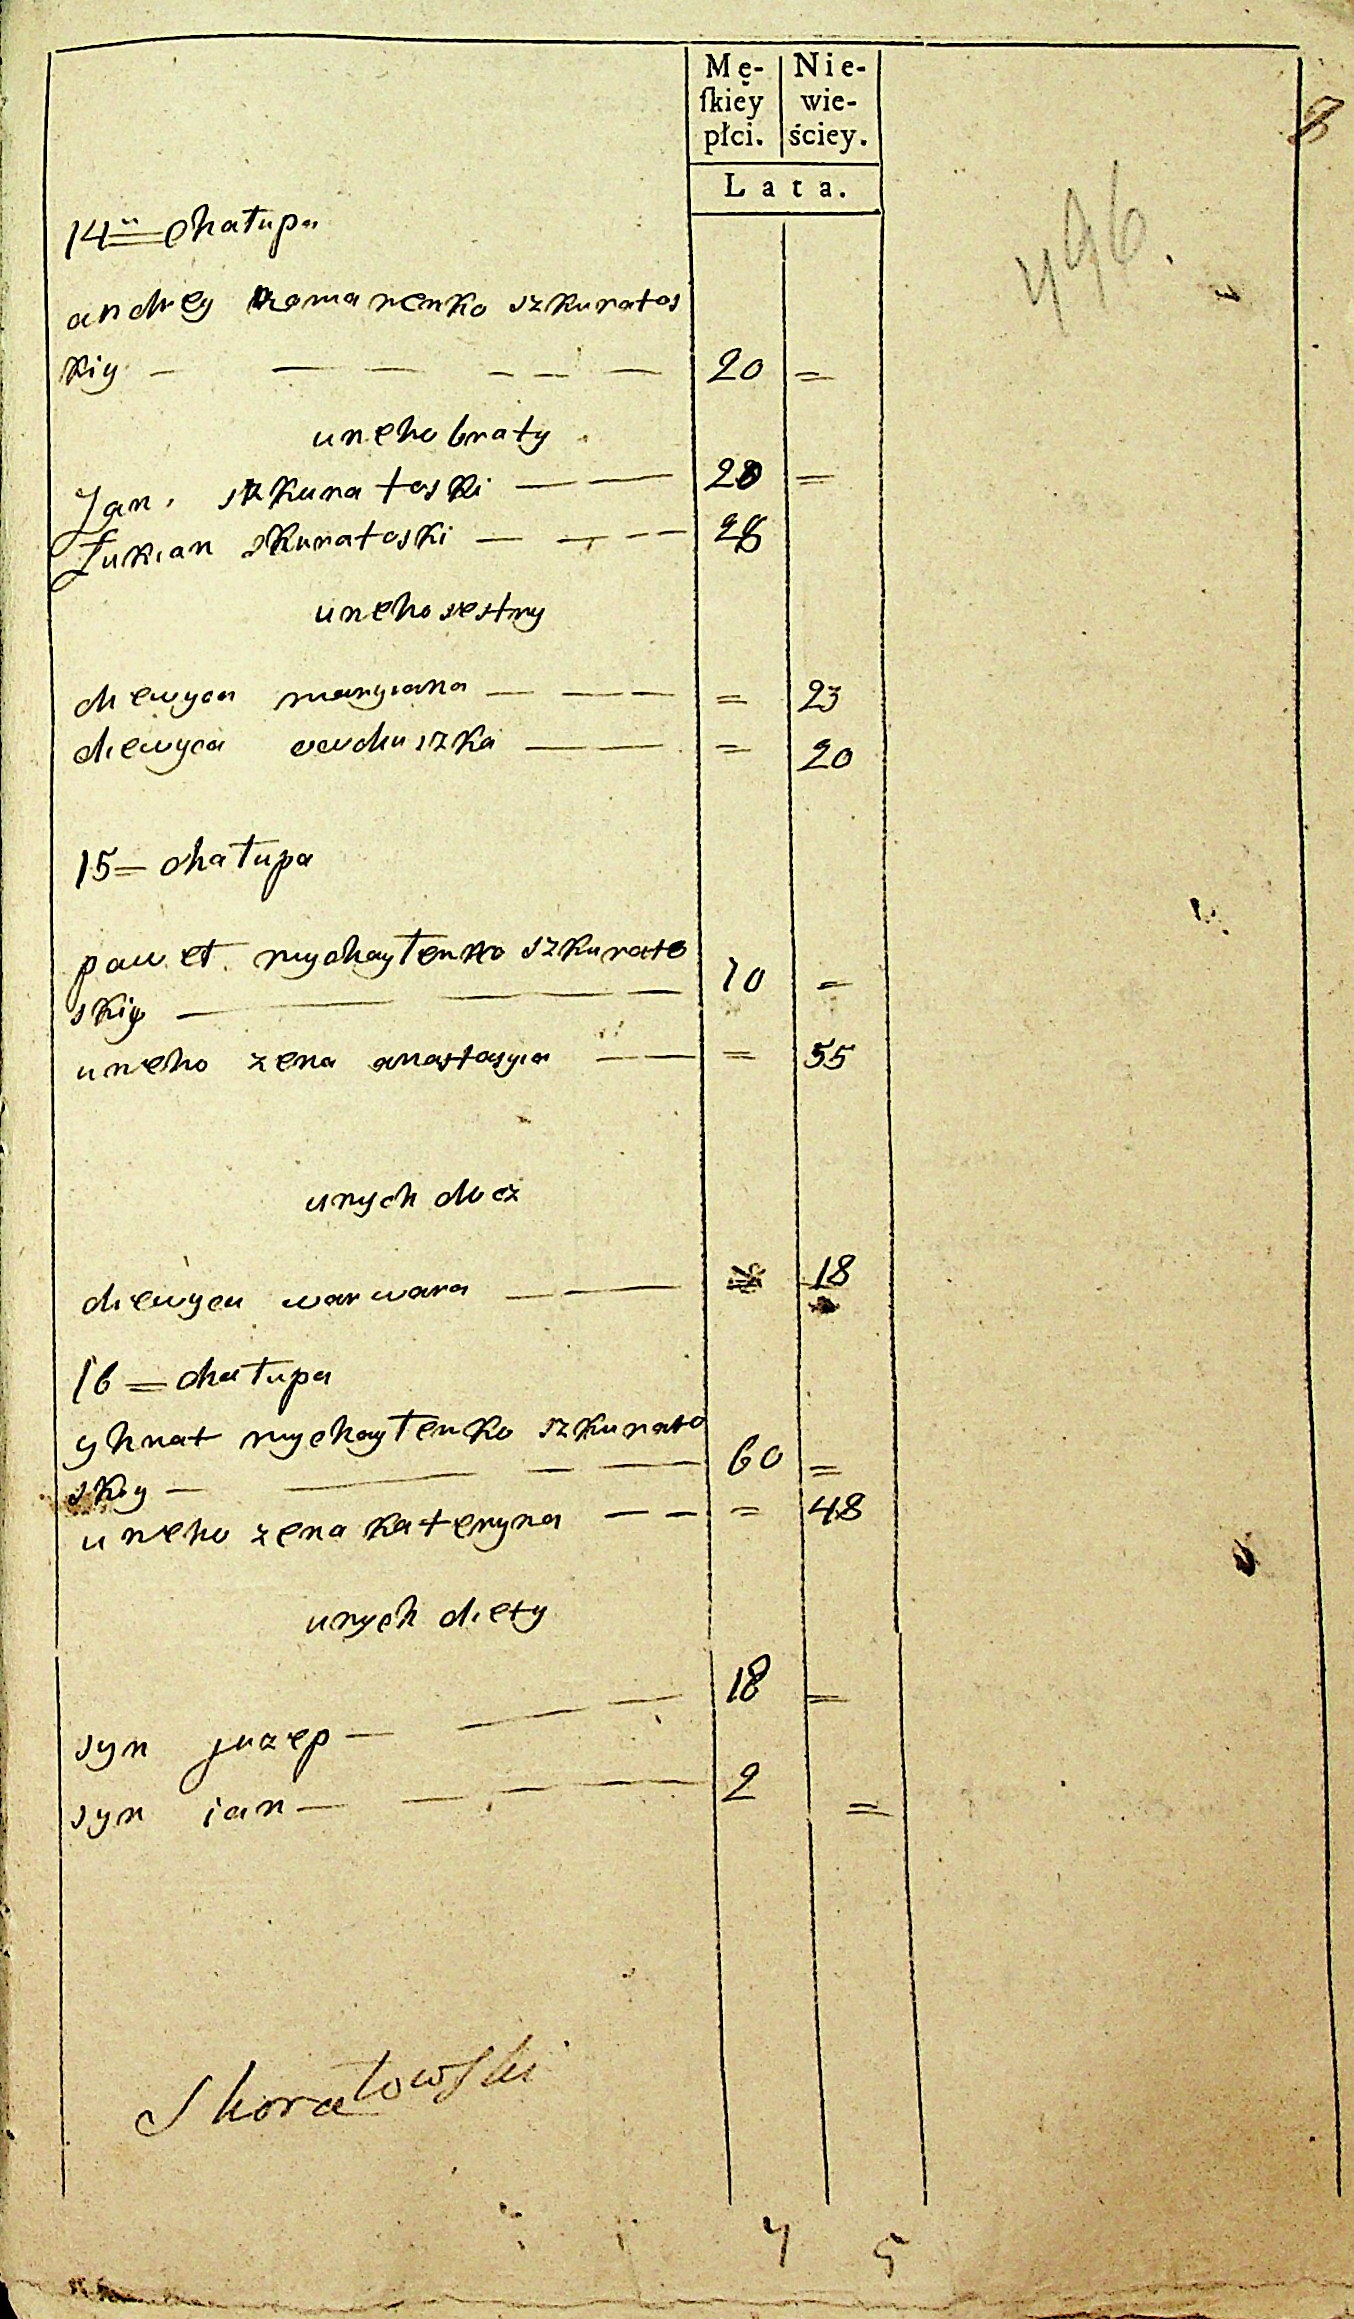 Mę- Nie-
ſkiey wie-
płci. ściey.
Lata.
8
496.
14 = chałupa
andrey romanenko szkuratos
kiy — — — — — — 20 =
uneho braty
Jan. szkuratoski — — 20 =
Łukian skuratoski — — — — 28
uneho sestry
diewyca maryiana — — — = 23
diewyca owduszka — — = 20
15 = chałupa
paweł mychayłenko szkurato
skiy — — — — 70 =
uneho zena anastasyia — — = 55
unych docz
diewyca warwara — — = 18
16 = chałupa
yhnat mychayłenko szkurato
skiy — — — — 60 =
uneho zena kateryna — — = 48
unych diety
syn juzep — — — 18 =
syn ian — — — — 2 =
Skoratowski
7 5